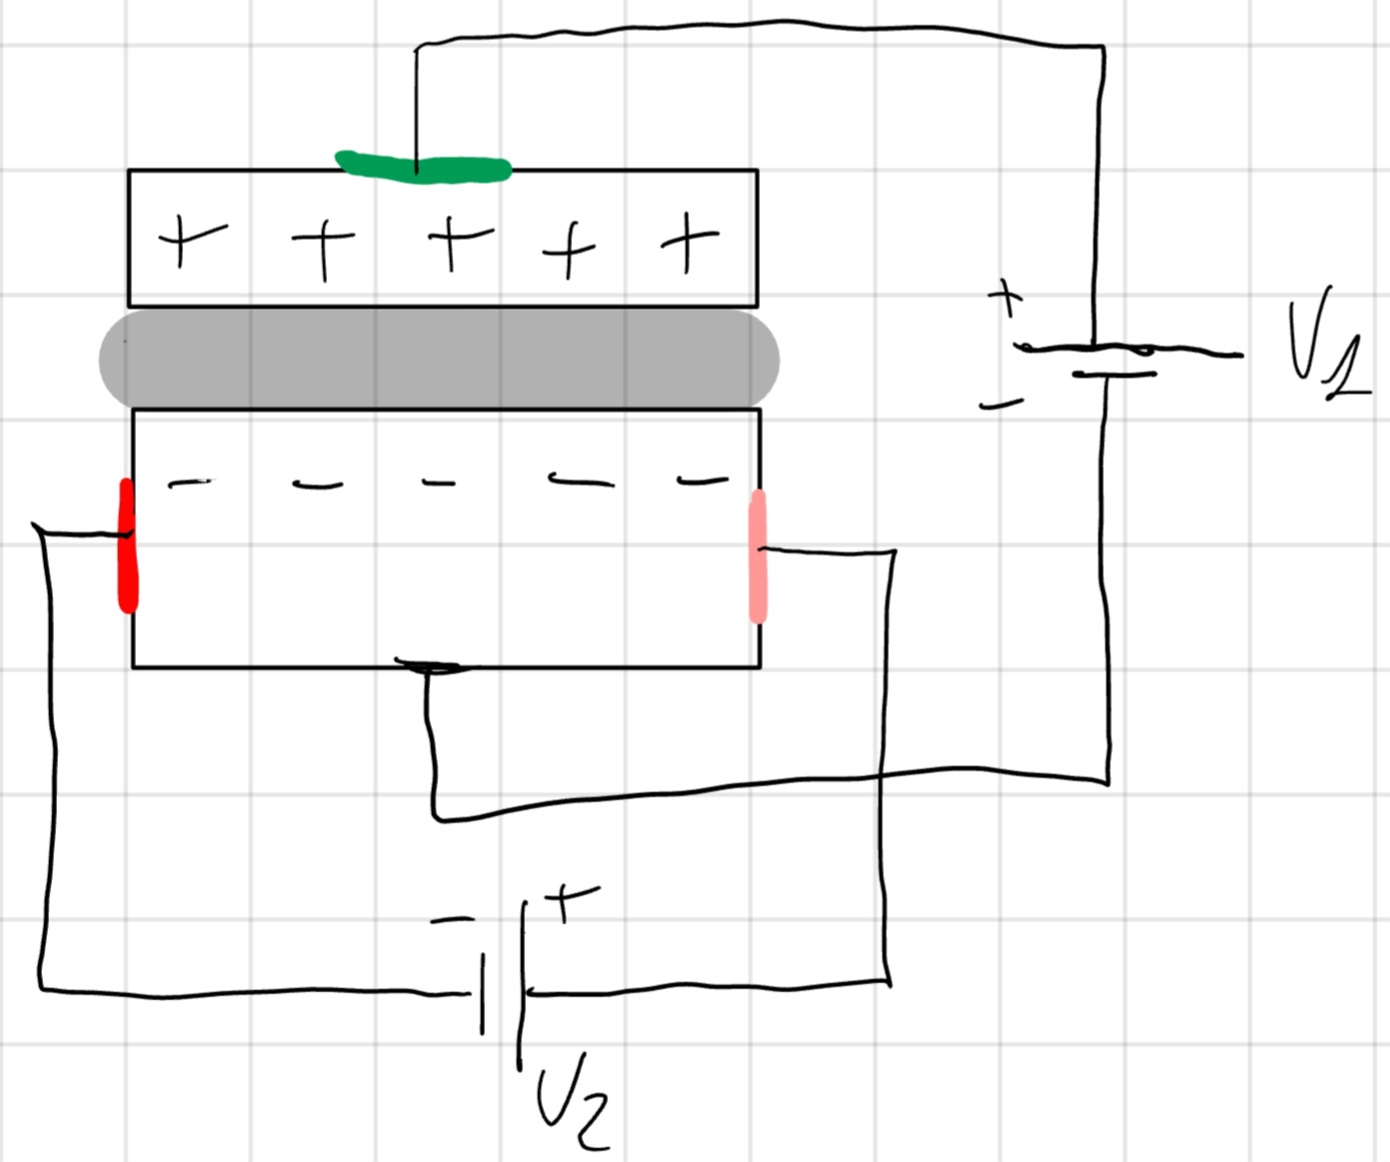 + + + + +
+
V1
-
- - - - -
- +
V2